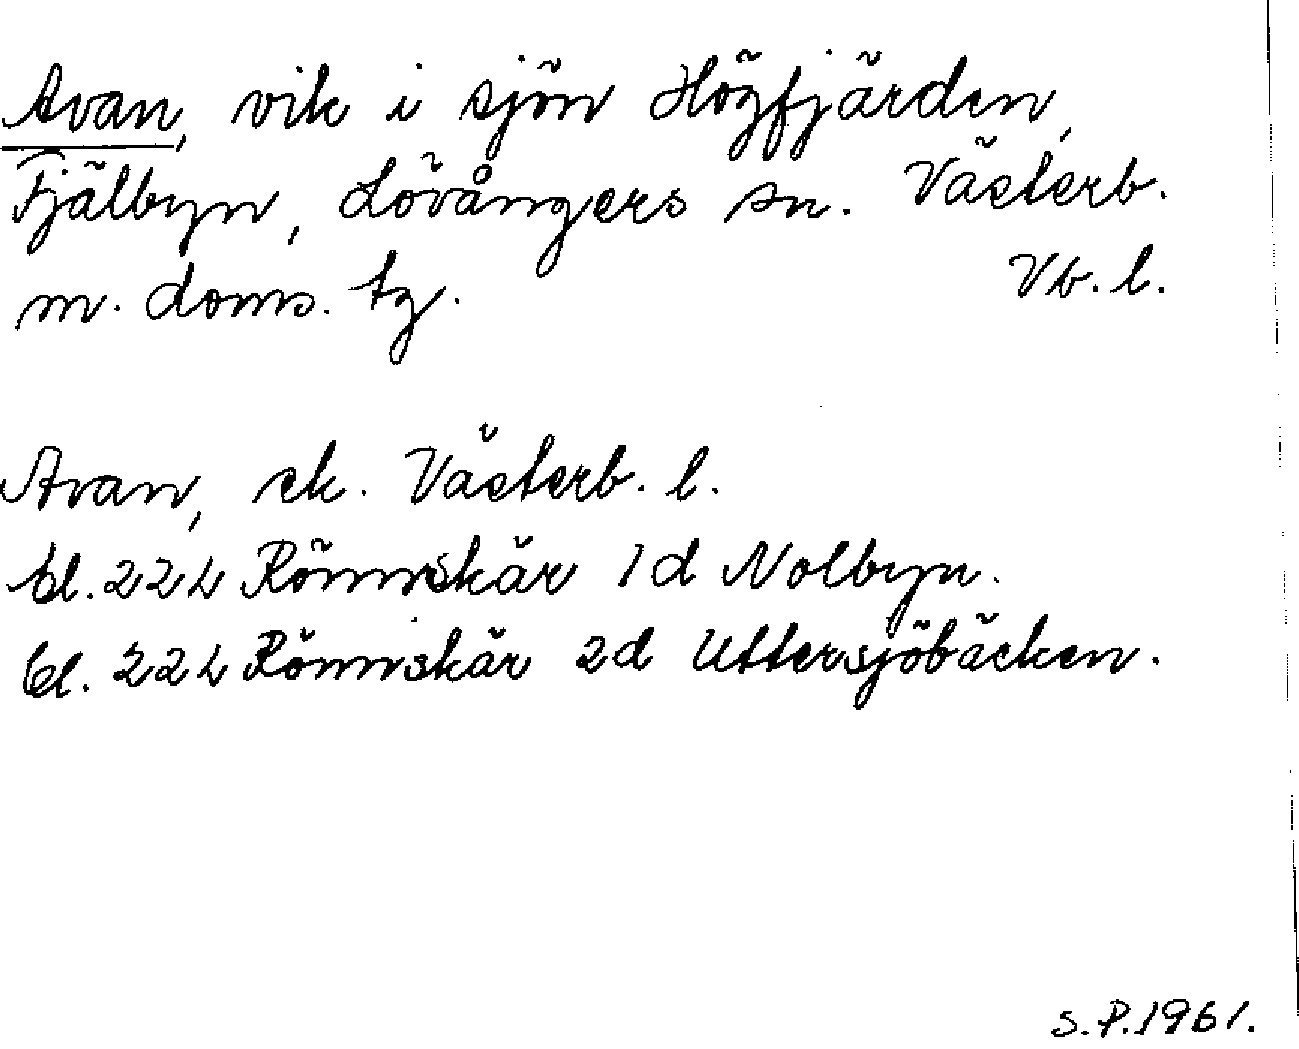 Avan, vik i sjön Högfjärden,
Fjälbyn, Lövångers sn. Västerb.
m. doms. tg. Vb. l.
Avan, ek. Västerb. l.
bl. 22L Rönnskär 1d Nolbyn.
bl. 22L Rönnskär 2d Uttersjöbäcken.
S.P.1961.